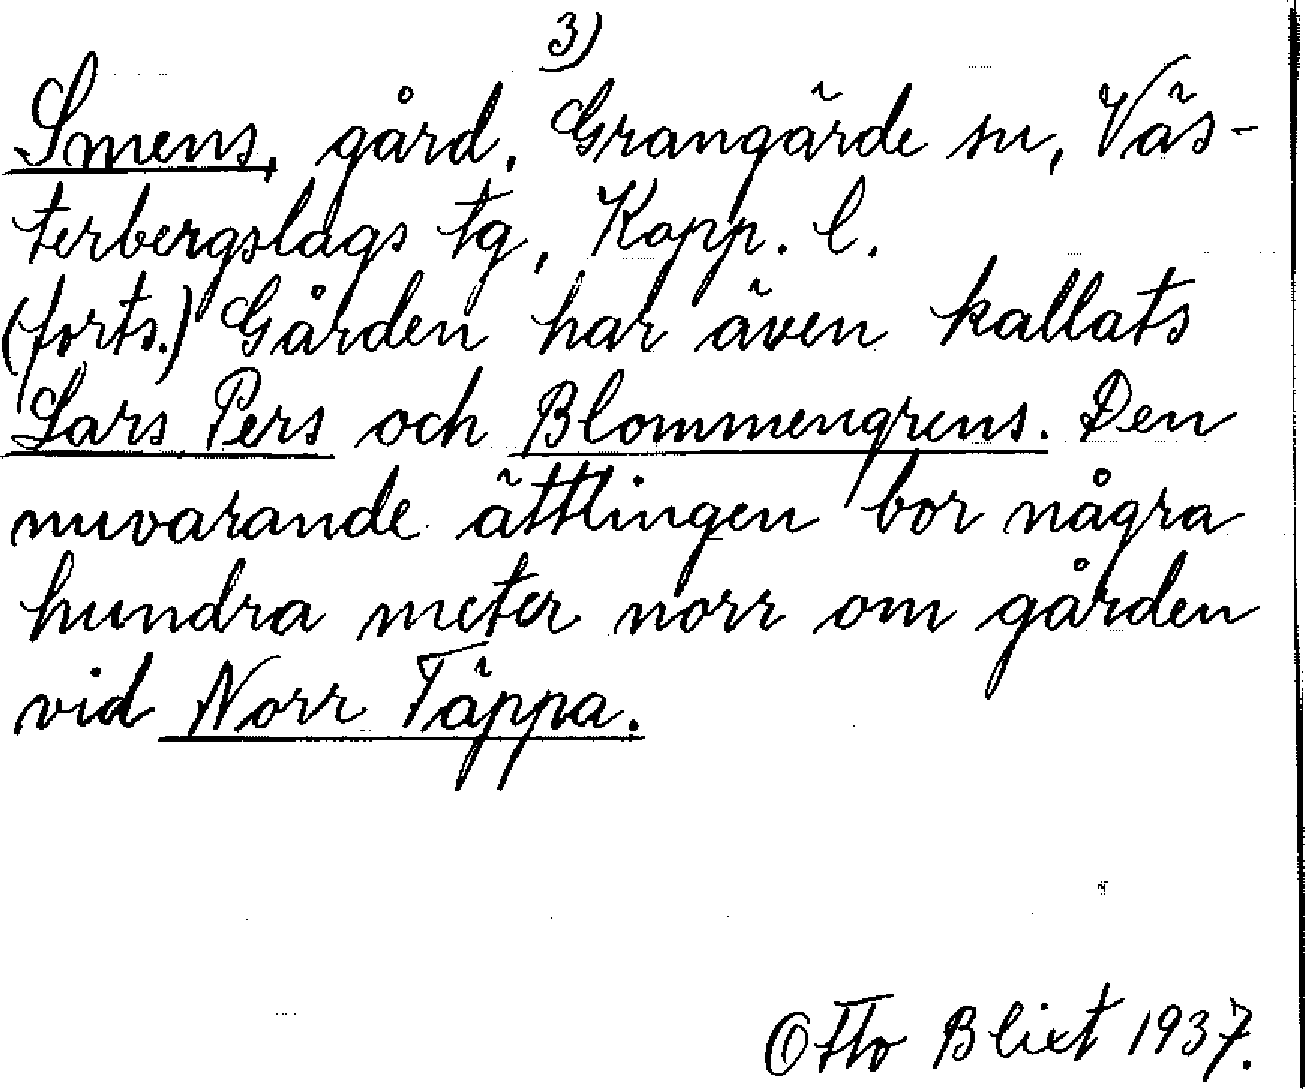 3)
Smens, gård, Grangärde sn, Väs-
terbergslags tg, Kopp. l.
(forts.) Gården har även kallats
Lars Pers och Blommengrens. Den
nuvarande ättlingen bor några
hundra meter norr om gården
vid Norr Täppa.
Otto Blixt 1937.